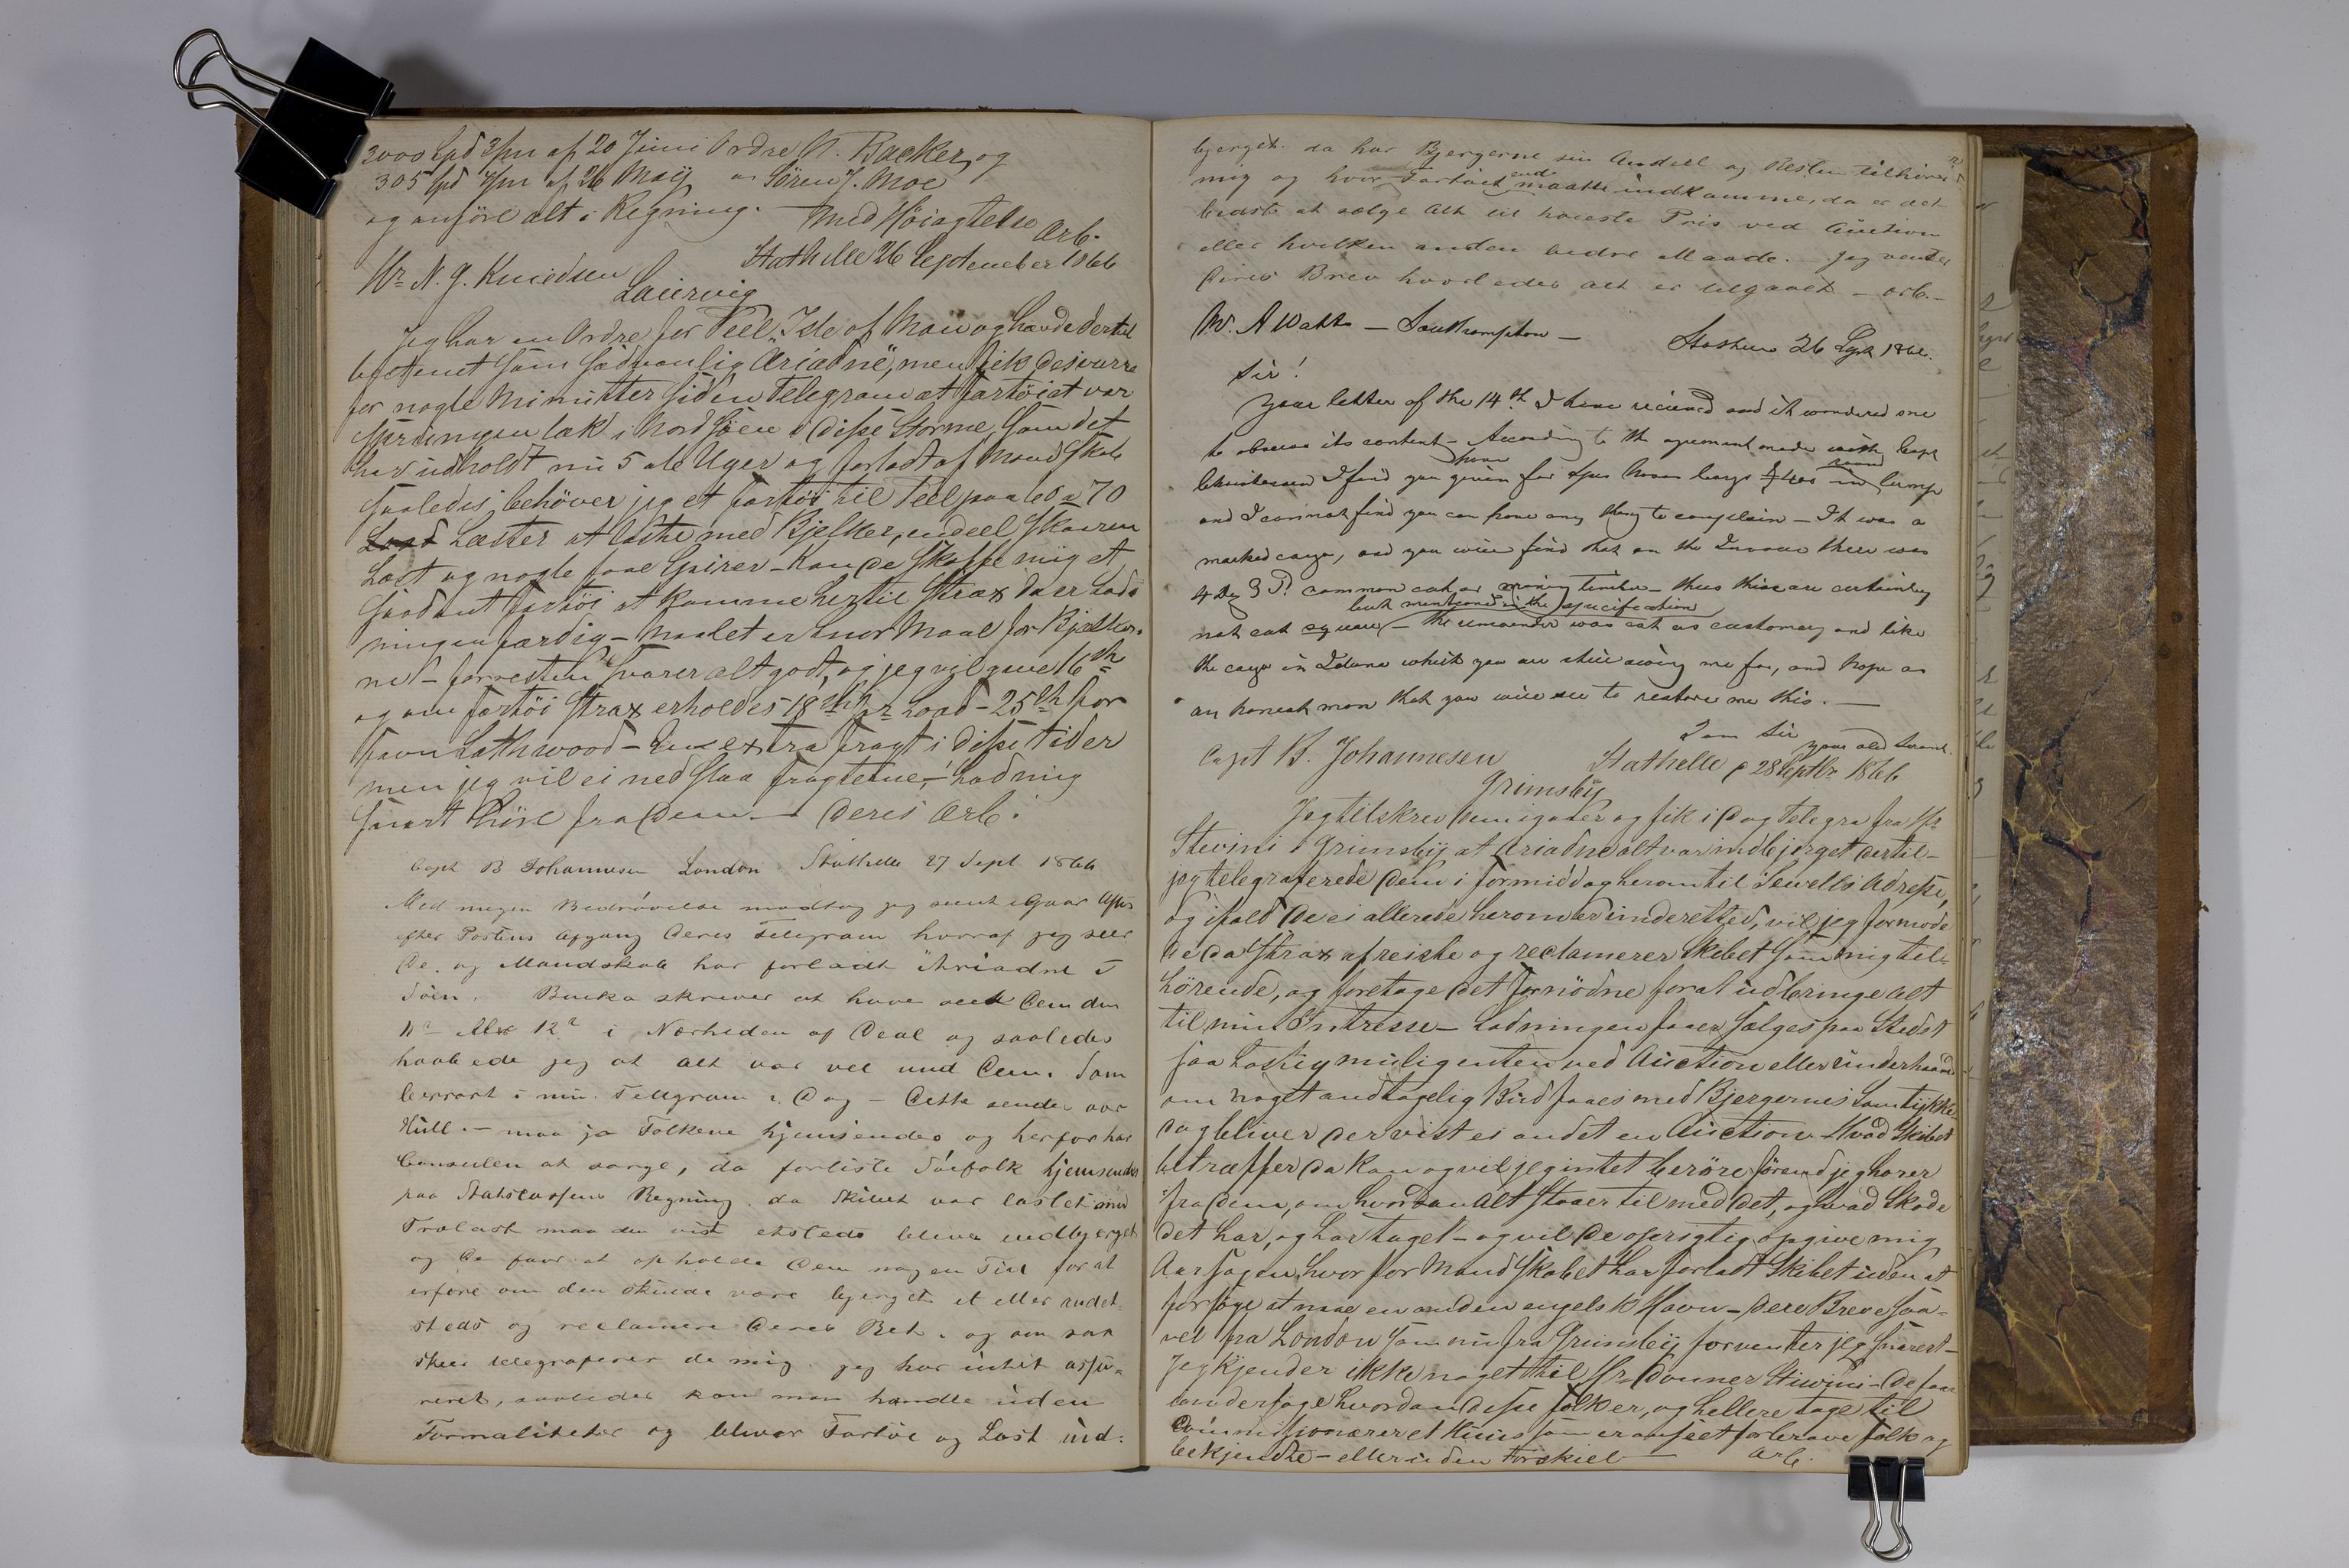 3000 Spd 3/m af 20 Juni Ordre A. Backer, og
305 Spd 4/m af 26 Maij " Sören J. Moe
og anföre alt i Regning. — Med Höiagtelse Arb.
Stathelle 26 September 1866
Hr N. J. Knudsen
Laurvig
Jeg har en Ordre for Peel, Isle of Man og havde dertil
bestemt som sædvanlig Ariadne, men fik desværre
for nogle Minutter siden Telegram at fartöiet var
sprungen læk i Nordsjöen i disse Storme, som det
har udholdt nu 5 Uger og forladt af Mandskab
Saaledes behöver jeg et fartöi til Peel paa 60 a 70
Læster at laste med Bjelker, endeel skaaren
Last og nogle faae Spirer – Kan De skaffe mig et
saadant fartöi at komme hertil strax da er Lad-
ningen færdig – Maalet er Snor Maal for Bjelker-
ne – forresten svarer alt godt, og jeg vil give 16 sh
og om fartöi strax erholdes 18 sh pr Load – 25 sh for
favn Lathwood – extra fragt i disse tider
men jeg vil ei nedslaa fragterne, – Lad mig
snart höre fra Dem — Deres Arb.
Capt B Johannesen London Stathelle 27 Sept 1866
Med megen Bedrövelse modtog jeg seent igaar Aftes
efter Postens Afgang Deres Telegram hvoraf jeg seer
De og Mandskab har forladt "Ariadne" i
Söen. skriver at have seet Dem den
11te 12te i Nærheden af Deal og saaledes
haabede jeg at alt var vel med Dem. Som
besvart i min Telegram i Dag – Dette sendes over
Hull. – maa jo Folkene hjemsendes og herfor har
Consulen at sørge, da forliste Söefolk hjemsendes
paa Statscassens Regning. da Skibet var lastet med
Trælast maa den vist etsteds blive indbjerget
og De faar at opholde Dem nogen Tid for at
erfare om den skulde være bjerget et eller andet-
steds og reclamere Deres Ret. og om saa
skeer telegraferer de mig. jeg har intet assu-
reret, saaledes kan man handle uden
Formaliteter og bliver Fartöi og Last ind-
bjerget. da har Bjergerne sin Andeel og Resten tilhörer
mig og hvor Fartöiet end maatte indkomme, da er det
bedst at sælge Alt til høieste Pris ved Auction
eller hvilken anden bedre Maade. – Jeg venter
Deres Brev hvorledes alt er tilgaaet – Arb. –
W. A Watts — Southampton —
26 Sept 1866.
Sir!
Your letter of the 14th I have received and it wondered me
to observe its content – According to the agreement made with Capt
Christensen I find you have given for cargo £400 in lump
and I cannot find you can have any thing to complain – It was a
marked cargo, and you will find that on the Invoice there was
4 common cut or mining timber – these are certainly
not cut square but mentioned in the specification – the remainder was cut as customary and like
the cargo in Iduna which you are still owing me for, and hope as
an honest man that you will see to restore me this. —
I am Sir
your obd Servant.
Capt B. Johannesen Stathelle 28 Septbr 1866
Grimsby
Jeg tilskrev Dem igaar og fik i Dag telegra fra Hr
Stevini i Grimsby at Ariadne alt var indbjerget dertil –
jeg telegraferede Dem i formiddag herom til Sewells Adresse,
og ifald De ei allerede herom er underettet, vil jeg formode
De da strax afreiste og reclamerer Skibet som mig til-
hörende, og foretage det fornödne for at udbringe alt
til min Intresse – Ladningen faaer sælges paa Stedet
saa hastig mulig enten ved Auction eller underhaand
om noget andtagelig Bud faaes med Bjergernes Samtykke –
da bliver der vist ei andet en Auction – Hvad Skibet
betræffer da kan og vil jeg intet beröre förend jeg hörer
fra Dem, om hvordan alt staaer til med det, og hvad Skade
det har, og har taget – og vil De oprigtig opgive mig
Aarsagen, hvorfor Mandskabet har forladt Skibet uden at
forsöge at naae en anden engelsk Havn – Dere Breve saa-
vel fra London som nu fra Grimsby forventer jeg snarest –
Jeg kjender ikke noget til Hr Donner Stivini – De faar
undersöge hvordan disse folk er, og hellere tage til
Commissionærer et Huus som er anseet for brave folk og
bekjendte – eller uden Forskiel — Arb.